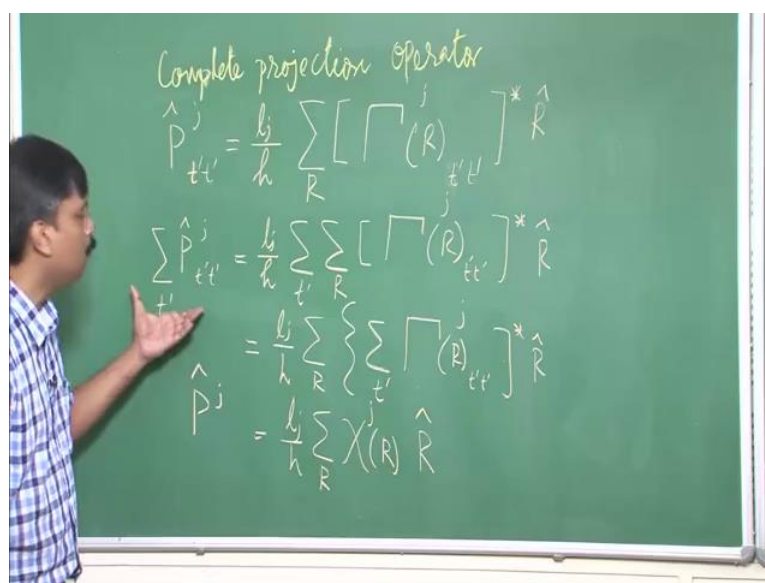 Complete projection operator
P̂ʲ_{t't'} = l_j/h Σ_R [Γ(R)ʲ_{t't'}]* R̂
Σ_{t'} P̂ʲ_{t't'} = l_j/h Σ_{t'} Σ_R [Γ(R)ʲ_{t't'}]* R̂
= l_j/h Σ_R {Σ_{t'} Γ(R)ʲ_{t't'}]* R̂
P̂ʲ = l_j/h Σ_R χʲ(R) R̂